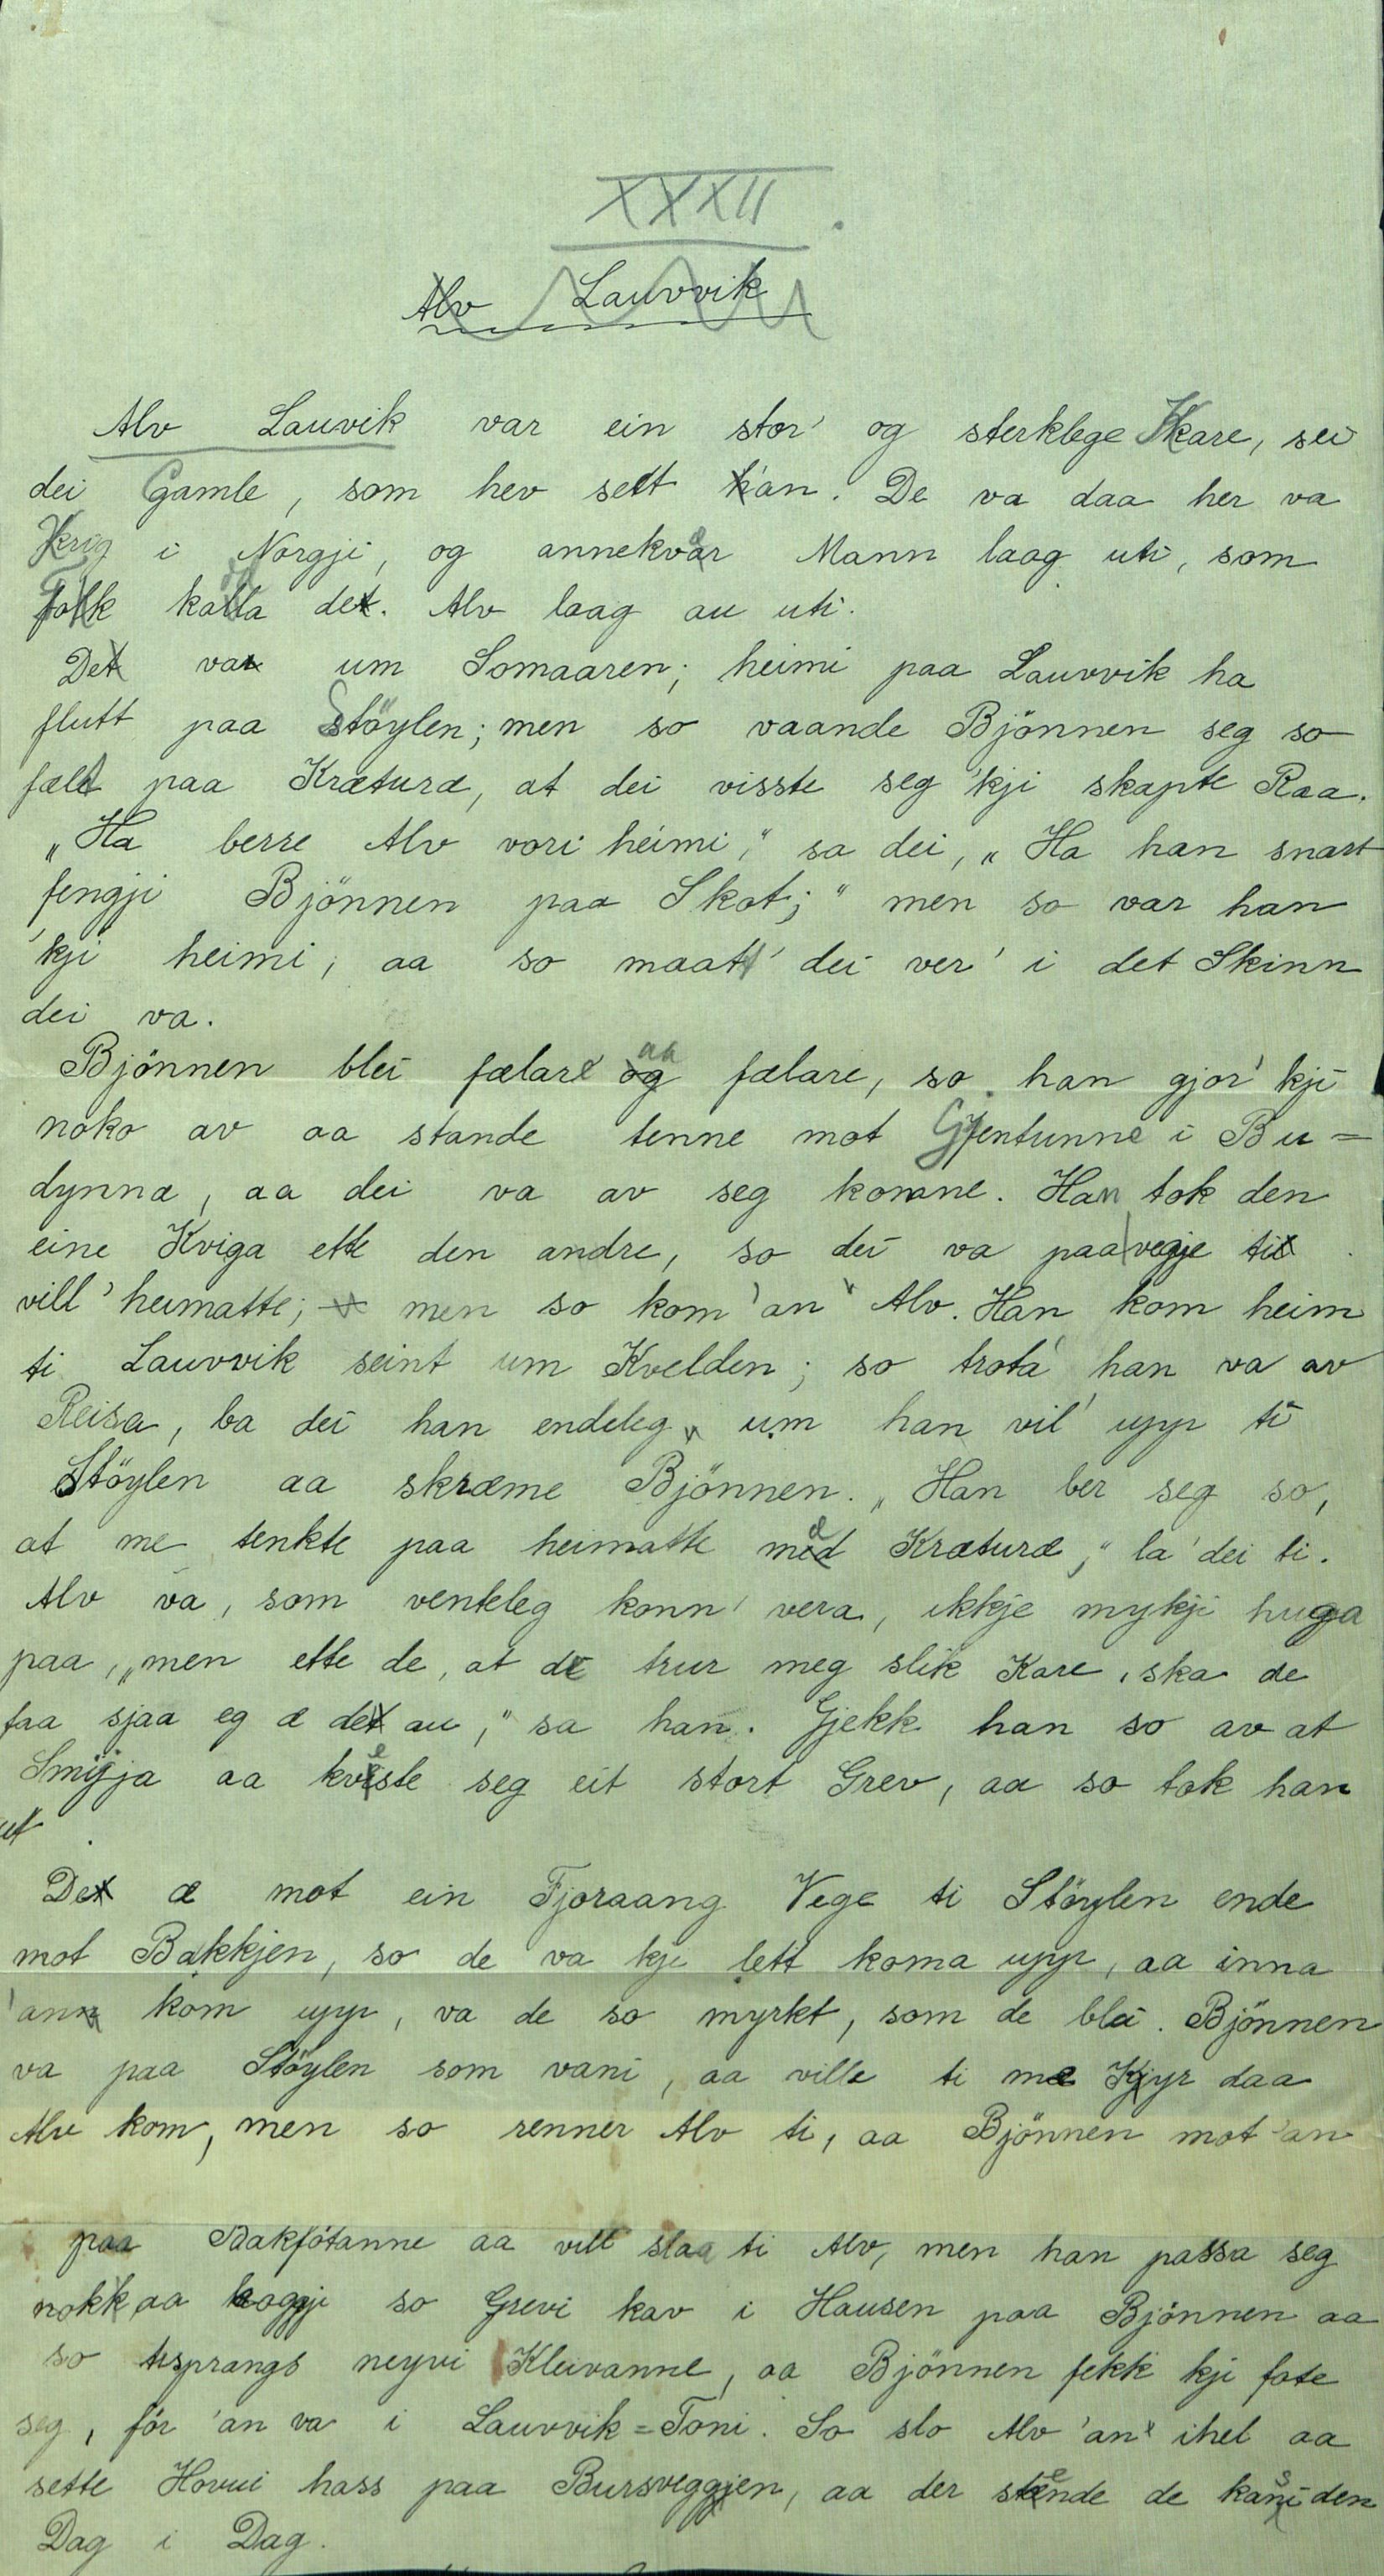 XXXII.
Alv Lauvvik
Alv Lauvik var ein stor' og sterklege Kare, sei
dei Gamle, som hev sett 'an. De va daa her va
Krig i Norgji, og annekvær Mann laag uti, som
Folk kalla de. Alv laag au uti.
De va um Somaaren; heimi paa Lauvvik ha
flutt paa Støylen; men so vaande Bjönnen seg so
fælt paa Kræturæ, at dei visste seg 'kji skapte Raa.
„Ha berre Alv vori heimi," sa dei, „Ha han snart
fengji Bjönnen paa Skot;" men so var han
'kji heimi, aa so maatt' dei ver' i det Skinn
dei va.
Bjönnen blei fælare aa fælare, so han gjor' kji
noko av aa stande tenne mot Gjentunne i Bu=
dynnæ, aa dei va av seg komne. Han tok den
eine Kviga ette den andre, so dei va paa vegje ti
vill' heimatte; men so kom 'an Alv. Han kom heim
ti Lauvvik seint um Kvelden; so trøta' han va av
Reisa, ba dei han endeleg um han vil' upp ti
Støylen aa skræme Bjönnen. „Han ber seg so,
at me tenkte paa heimatte mæ Kræturæ," la' dei ti.
Alv va, som venteleg konn' vera, ikkje mykji huga
paa, „men ette de, at de trur meg slik Kare, ska de
faa sjaa eg æ de au," sa han. Gjekk han so av at
Smijja aa kveste seg eit stort Grev, aa so tok han
ut.
De æ mot ein Fjoraang Vege ti Støylen ende
mot Bakkjen, so de va kje lett koma upp, aa inna
'an kom upp, va de so myrkt, som de blei. Bjönnen
va paa Støylen som vani, aa ville ti mæ Kjyr daa
Alv kom, men so renner Alv ti, aa Bjönnen mot 'an
paa Bakfótanne aa vill slaa ti Alv, men han passa seg
nokk aa hoggji so Grevi kav i Hausen paa Bjönnen aa
so tisprangs neyvi Kleivanne, aa Bjönnen fekk kji fote
seg, för 'an va i Lauvvik=Toni. So slo Alv 'an ihel aa
sette Hovui hass paa Bursveggjen, aa der stende de kansi den
Dag i Dag.